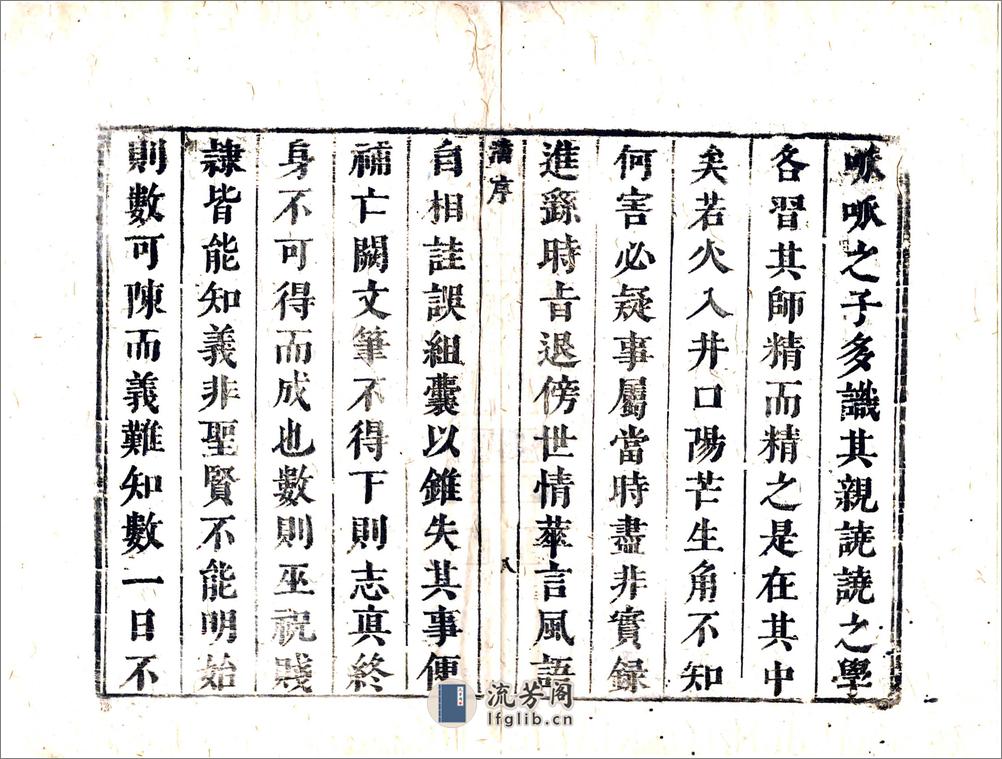 呱呱之子多識其親譊譊之學
各習其師精而精之是在其中
矣若火入井口陽芒生角不知
何害必疑事屬當時盡非實録
進繇時旨退傍世情華言風語
序
八
自相詿誤組囊以錐失其事便
補亡闕文筆不得下則志眞終
身不可得而成也數則巫祝賤
隷皆能知義非聖賢不能明始
則數可陳而義難知數一日不
流芳阁
lfglib.cn